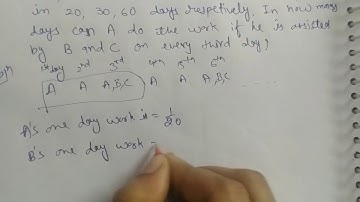 in 20, 30, 60 days respetively. In how many
days can A do the work if he is assisted
by B and C on every third day?
1st day 2nd 3rd 4th 5th 6th
A A A,B,C A A A,B,C ....
A's one day work is = 1/20
B's one day work =